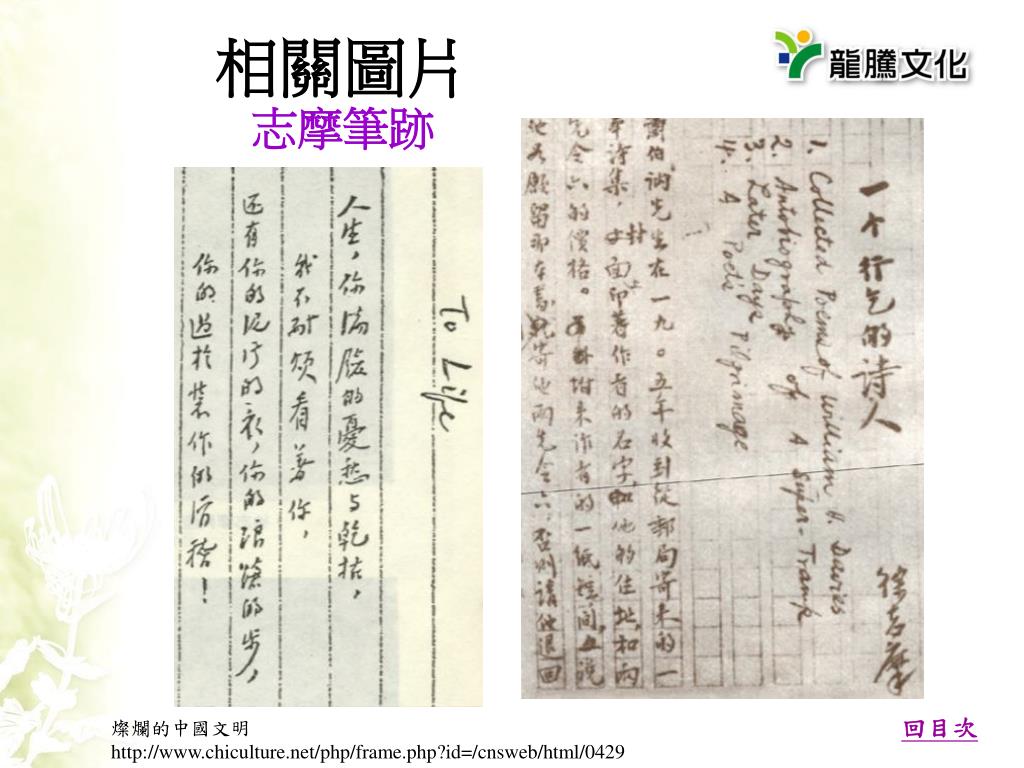 相關圖片
志摩筆跡
龍騰文化
To Life
人生，你滿臉的憂愁与乾枯，
我不耐煩看着你，
还有你的泥污的衣，你的
的步，
你的過於裝作的
！
一个行乞的詩人
徐志摩
1. Collected Poems of William H. Davies
2. Autobiography of A Super-Tramp
3. Later Days
4. A Poet's Pilgrimage
先生在一九〇五年收到從郵局寄来的一
本詩集，封面上印着作者的名字，和他的住址，和兩
先令六的價格。附来作者的一紙短
他若願留那本書，
寄他兩先令六，否則請他退回
燦爛的中國文明
http://www.chiculture.net/php/frame.php?id=/cnsweb/html/0429
回目次